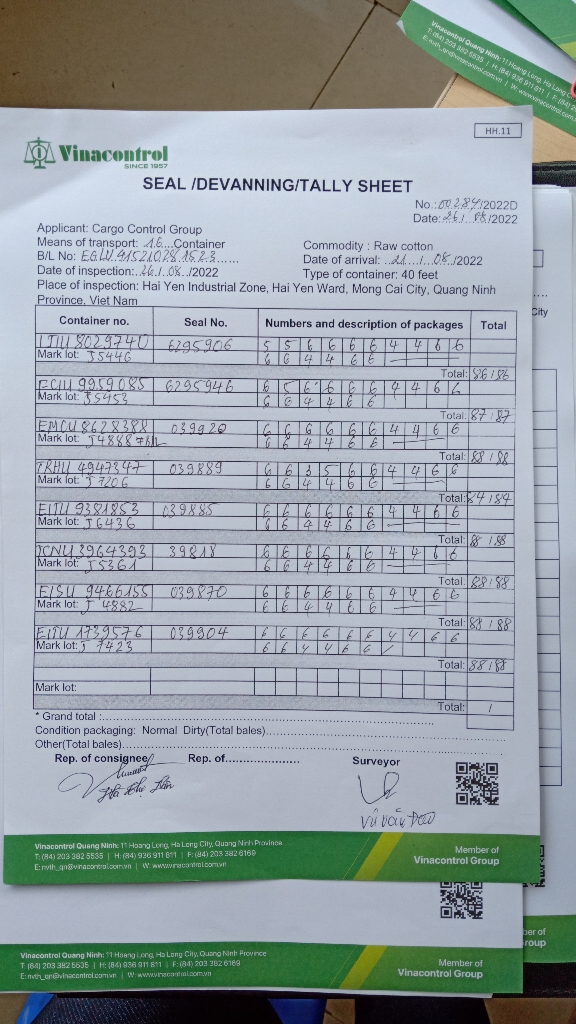 Vinacontrol Quang Ninh: 11 Hoang Long, Ha Long C
T: (84) 203 382 5535 | H: (84) 936 911 811 | F: (84) 2
E: nvth_qn@vinacontrol.com.vn | W: www.vinacontrol.com.vn
HH.11
Vinacontrol
SINCE 1957
SEAL /DEVANNING/TALLY SHEET
No.: 00284/2022D
Date: 26 / 08 /2022
Applicant: Cargo Control Group
Means of transport: 16 Container
Commodity : Raw cotton
B/L No: EGLV 415210281523
Date of arrival: 21 / 08 /2022
Date of inspection: 26 / 08 /2022
Type of container: 40 feet
Place of inspection: Hai Yen Industrial Zone, Hai Yen Ward, Mong Cai City, Quang Ninh
Province, Viet Nam
Container no. Seal No. Numbers and description of packages Total
8029740 6295906 5 5 6 6 6 6 4 4 6 6
Mark lot: J5446 6 6 4 4 6 6
Total: 86 / 86
9959085 6295946 6 5 6 6 6 6 4 4 6 6
Mark lot: J5453 6 6 4 4 6 6
Total: 87 / 87
EMCU 8628388 039920 6 6 6 6 6 6 4 4 6 6
Mark lot: J4888 6 6 4 4 6 6
Total: 88 / 88
TRHU 4947347 039889 6 6 3 5 6 6 4 4 6 6
Mark lot: J7206 6 6 4 4 6 6
Total: 84 / 84
EITU 9381853 039885 6 6 6 6 6 6 4 4 6 6
Mark lot: J6436 6 6 4 4 6 6
Total: 88 / 88
3964393 39818 6 6 6 6 6 6 4 4 6 6
Mark lot: J5361 6 6 4 4 6 6
Total: 88 / 88
EISU 9466155 039870 6 6 6 6 6 6 4 4 6 6
Mark lot: J 4882 6 6 4 4 6 6
Total: 88 / 88
EITU 1739576 039904 6 6 6 6 6 6 4 4 6 6
Mark lot: J 7423 6 6 4 4 6 6
Total: 88 / 88
Mark lot:
Total: /
* Grand total :
Condition packaging: Normal Dirty(Total bales)
Other(Total bales)
Rep. of consignee Rep. of Surveyor
Vũ Văn
Vinacontrol Quang Ninh: 11 Hoang Long, Ha Long City, Quang Ninh Province
T: (84) 203 382 5535 | H: (84) 936 911 811 | F: (84) 203 382 6169
E: nvth_qn@vinacontrol.com.vn | W: www.vinacontrol.com.vn
Member of
Vinacontrol Group
Vinacontrol Quang Ninh: 11 Hoang Long, Ha Long City, Quang Ninh Province
T: (84) 203 382 5535 | H: (84) 936 911 811 | F: (84) 203 382 6169
E: nvth_qn@vinacontrol.com.vn | W: www.vinacontrol.com.vn
Member of
Vinacontrol Group
City
ber of
roup